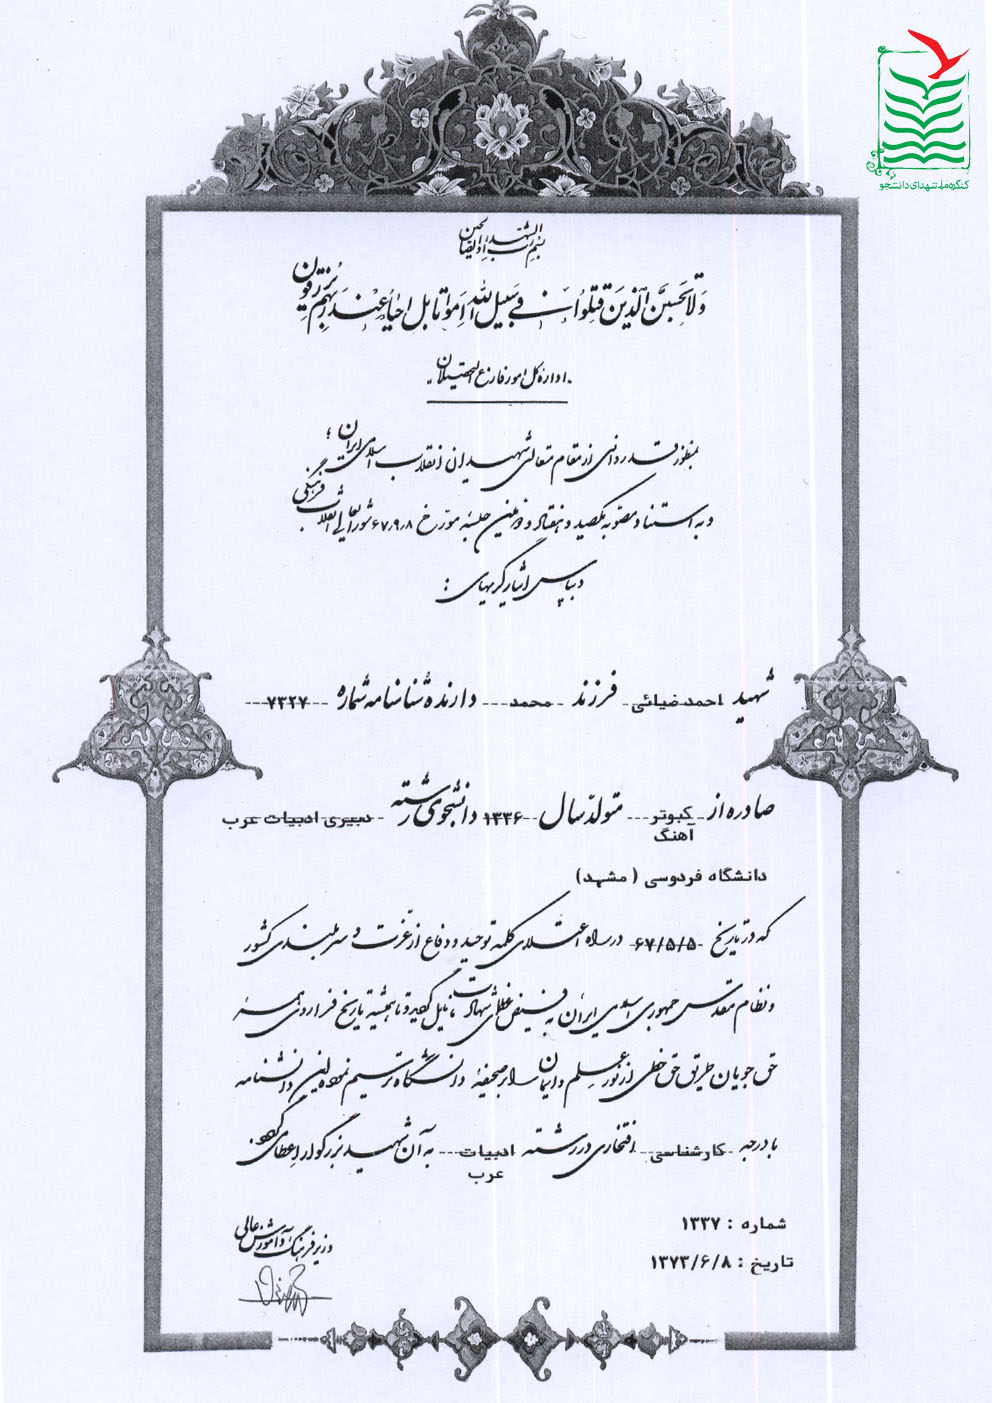 کنگره ملی شهدای دانشجو
بسم رب الشهداء و الصالحین
ولا تحسبن الذین قتلوا فی سبیل الله امواتا بل احیاء عند ربهم یرزقون
اداره کل امور فارغ التحصیلان
بمنظور قدردانی از مقام متعالی شهیدان انقلاب اسلامی ایران ؛
و به استناد مصوبه یکصد و هفتاد و دومین جلسه مورخ ۶۷/۹/۸ شورایعالی انقلاب فرهنگی
و بپاس ایثارگریهای :
شهید احمد ضیائی فرزند محمد دارنده شناسنامه شماره ۷۳۲۷
صادره از کبوتر آهنگ متولد سال ۱۳۳۶ دانشجوی رشته دبیری ادبیات عرب
دانشگاه فردوسی ( مشهد )
که در تاریخ ۶۷/۵/۵ در راه اعتلای کلمه توحید و دفاع از عزت و سربلندی کشور
و نظام مقدس جمهوری اسلامی ایران به فیض عظمای شهادت نایل گردید و تا همیشه تاریخ فرا روی همه
حق جویان طریق حق خطی از نور علم و ایمان را بر صحیفه دانشگاه ترسیم نمود این دانشنامه
با درجه کارشناسی افتخاری در رشته ادبیات عرب به آن شهید بزرگوار اعطا می گردد.
شماره : ۱۳۳۷
تاریخ : ۱۳۷۳/۶/۸
وزیر فرهنگ و آموزش عالی